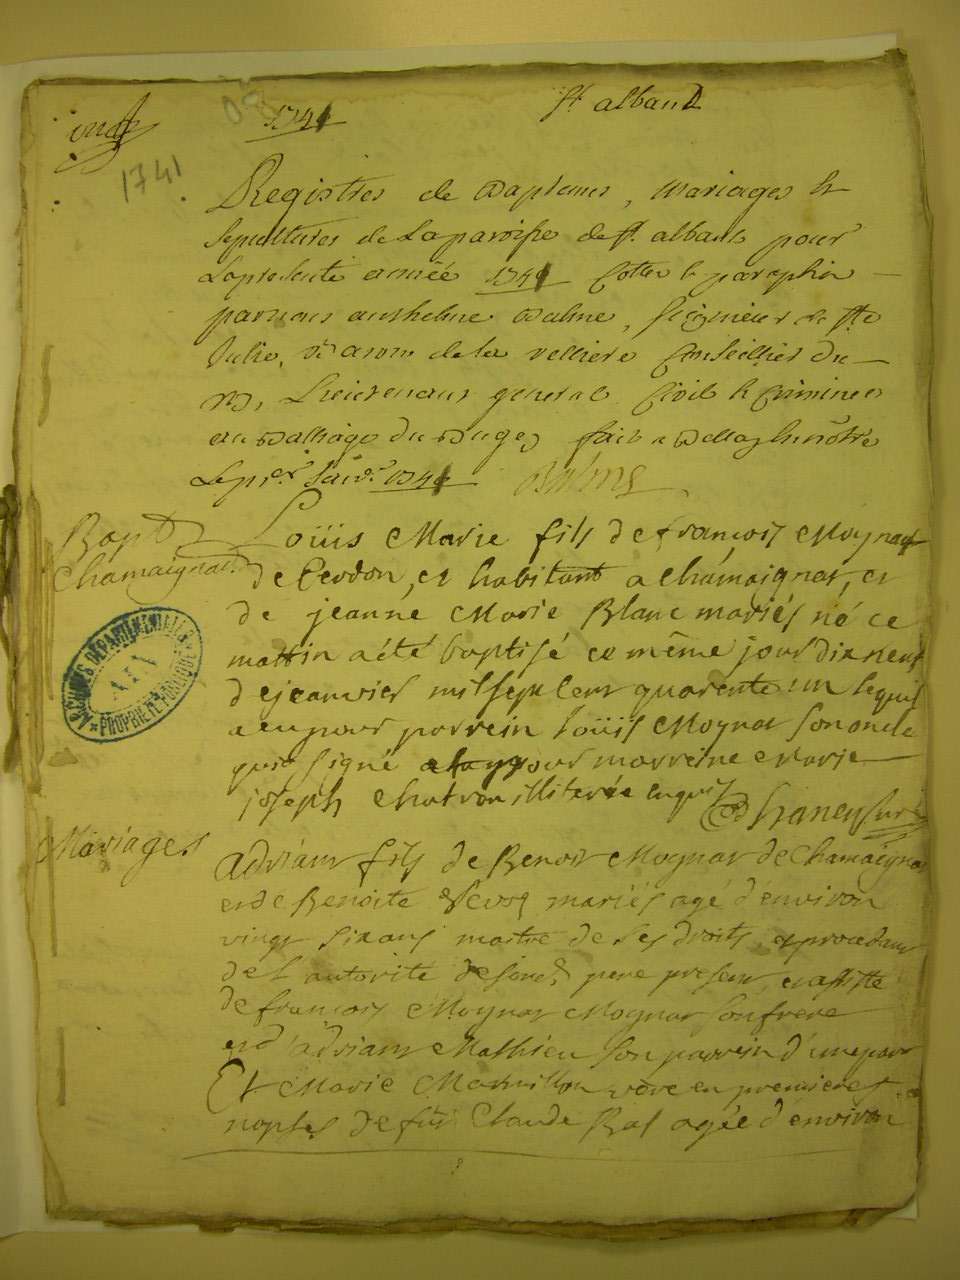 1741
St alban
1741
Registres de Baptemes, mariages et
sepultures de La paroisse de St. albans pour
La presente année 1741 Cottes et paraphés
par nous anthelme Balme, seigneur de Ste
Julie, Baron de la velliere Conseiller du
Roy, Lieutenant general Civil et Criminel
au Balliage du Bugey fait a Belley
Le per. janv. 1741 Balme
Bapt
Chamaignat
Loüis Marie fils de francois Moynat
de Cerdon, et habitant a Chamaignat, et
de jeanne Marie Blanc mariés né ce
mattin a été baptisé ce même jour dix neuf
de janvier mil sept cent quarente un lequel
a eu pour parrein Loüis Moynat son oncle
qui a signé pour marreine Marie
joseph Chatron illiterée enquise
Mariages
Adrian fils de Benoit Moynat de Chamaignat
et de Benoite mariés agé d'environ
vingt six ans maitre de ses droits, et procedant
de l'autorité de sond. pere present, et assisté
de francois Moynat Moynat son frere
et d'adrian Mathieu son parrein d'une part
Et Marie Marmillon veve en premieres
nopces de fut Claude Bal agée d'environ
ARCHIVES DÉPARTEMENTALES
AIN
PROPRIÉTÉ PUBLIQUE